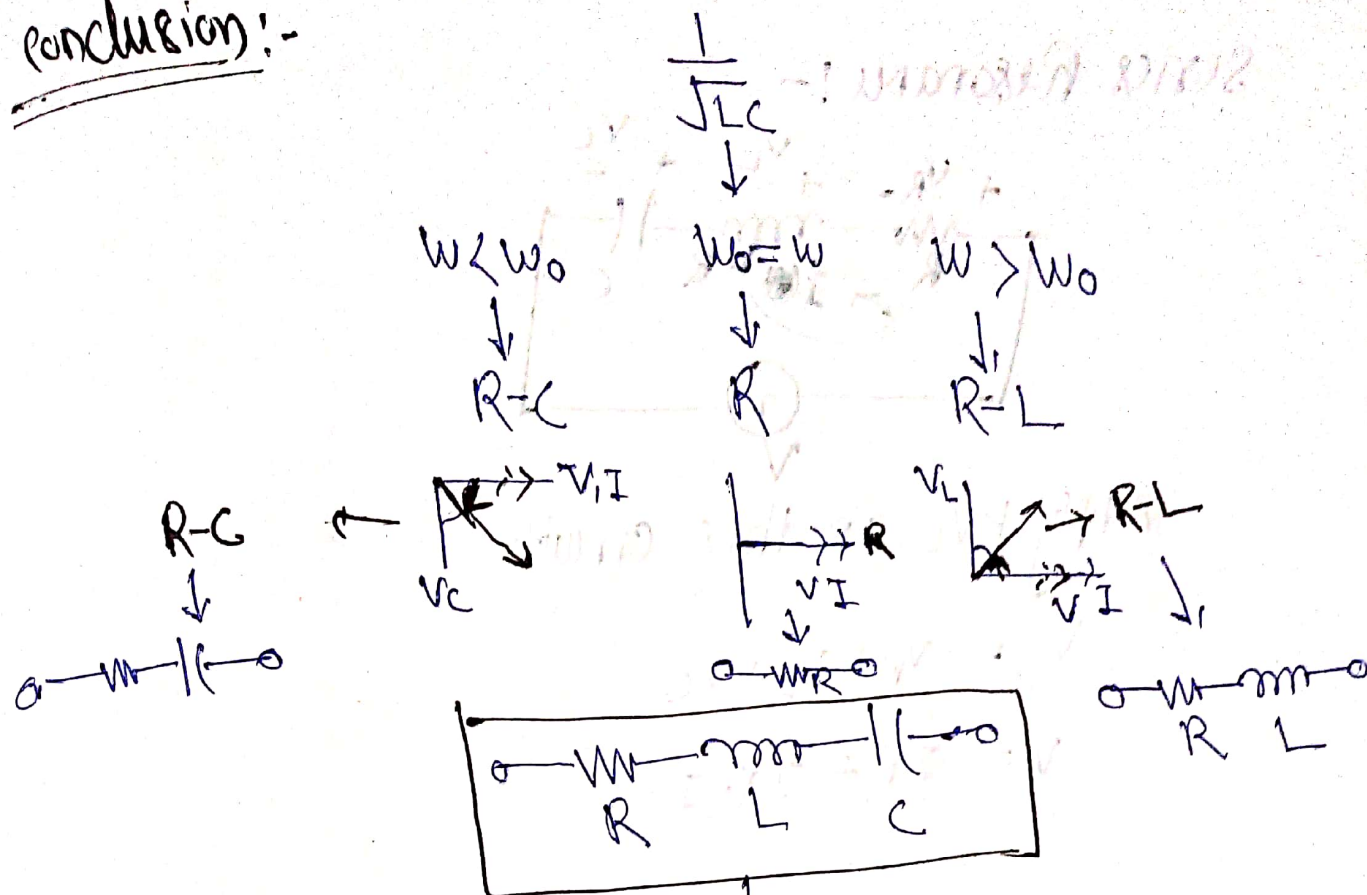 conclusion:-
1
√LC
W<W₀ W₀=W W>W₀
R-C R R-L
V,I
R-C
VC
R
VI
VL
R-L
VI
R
R L
R L C